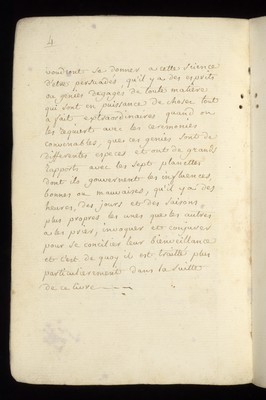 4
voudront se donner a cette science
d'etre persuadés, qu'il y a des esprits
ou genies degagés de toute matiere
qui sont en puissance de choses tout
a fait extraordinaires quand on
les requiert avec les ceremonies
convenables, que ces genies sont de
differentes especes et ont de grands
rapports avec les sept planettes
dont ils gouvernent les influences,
bonnes ou mauvaises, qu'il y a des
heures, des jours et des saisons,
plus propres les unes que les autres
a les prier, invoquer et conjurer
pour se concilier leur bienveillance
et c'est de quoy il est traitté plus
particulierement dans la suitte
de ce livre